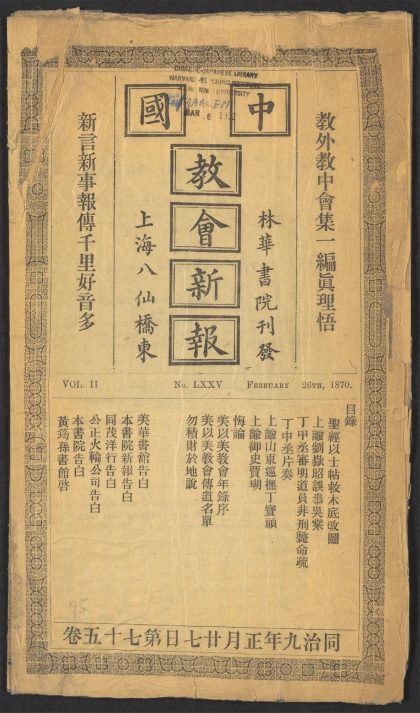 CHINESE-JAPANESE LIBRARY
HARVARD-YENCHING INSTITUTE
MAR 6
中國
教會新報
教外教中會集一編眞理悟
林華書院刊發
上海八仙橋東
新言新事報傳千里好音多
VOL. II No. LXXV FEBRUARY 26TH, 1870.
目錄
聖經以士帖救木底改圖
上諭劉嶽昭誤叅吳棠
丁中丞審明道員非刑斃命疏
丁中丞片奏
上諭山東巡撫丁寶楨
上諭御史賈瑚
悔論
美以美教會年錄序
美以美教會傳道名單
勿積財於地說
美華書館告白
本書院新報告白
同茂洋行告白
公正火輪公司告白
本書院告白
黃筠孫書館啓
同治九年正月廿七日第七十五卷